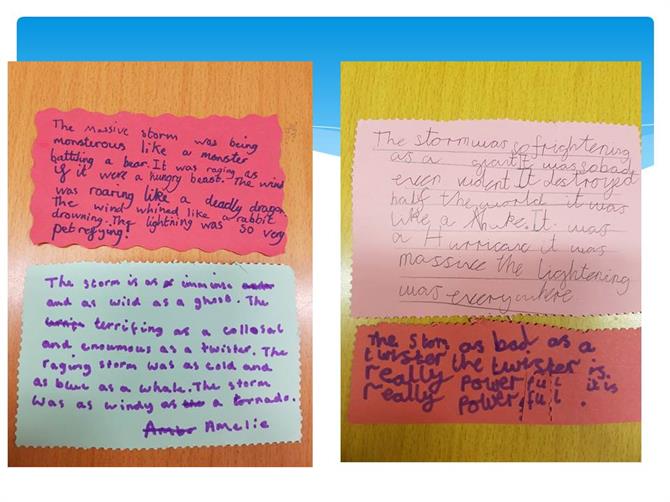 The massive storm was being
monsterous like a monster
battling a bear. It was raging as
if it were a hungry beast. The wind
was roaring like a deadly dragon.
The wind whined like a rabbit
drowning. The lightning was so very
petrefying!
The storm is as imminse
and as wild as a ghost. The
terrifing as a collosal
and enoumous as a twister. The
raging storm was as cold and
as blue as a whale. The storm
was as windy as a tornado.
Amelie
The storm was so frightening
as a giant It was so bad
even violent It destroyed
half the world it was
like a Nuke. It was
a Hurricane it was
massive the lightening
was everywhere
The storm as bad as a
twister the twister is.
really powerful. it is
really powerful.